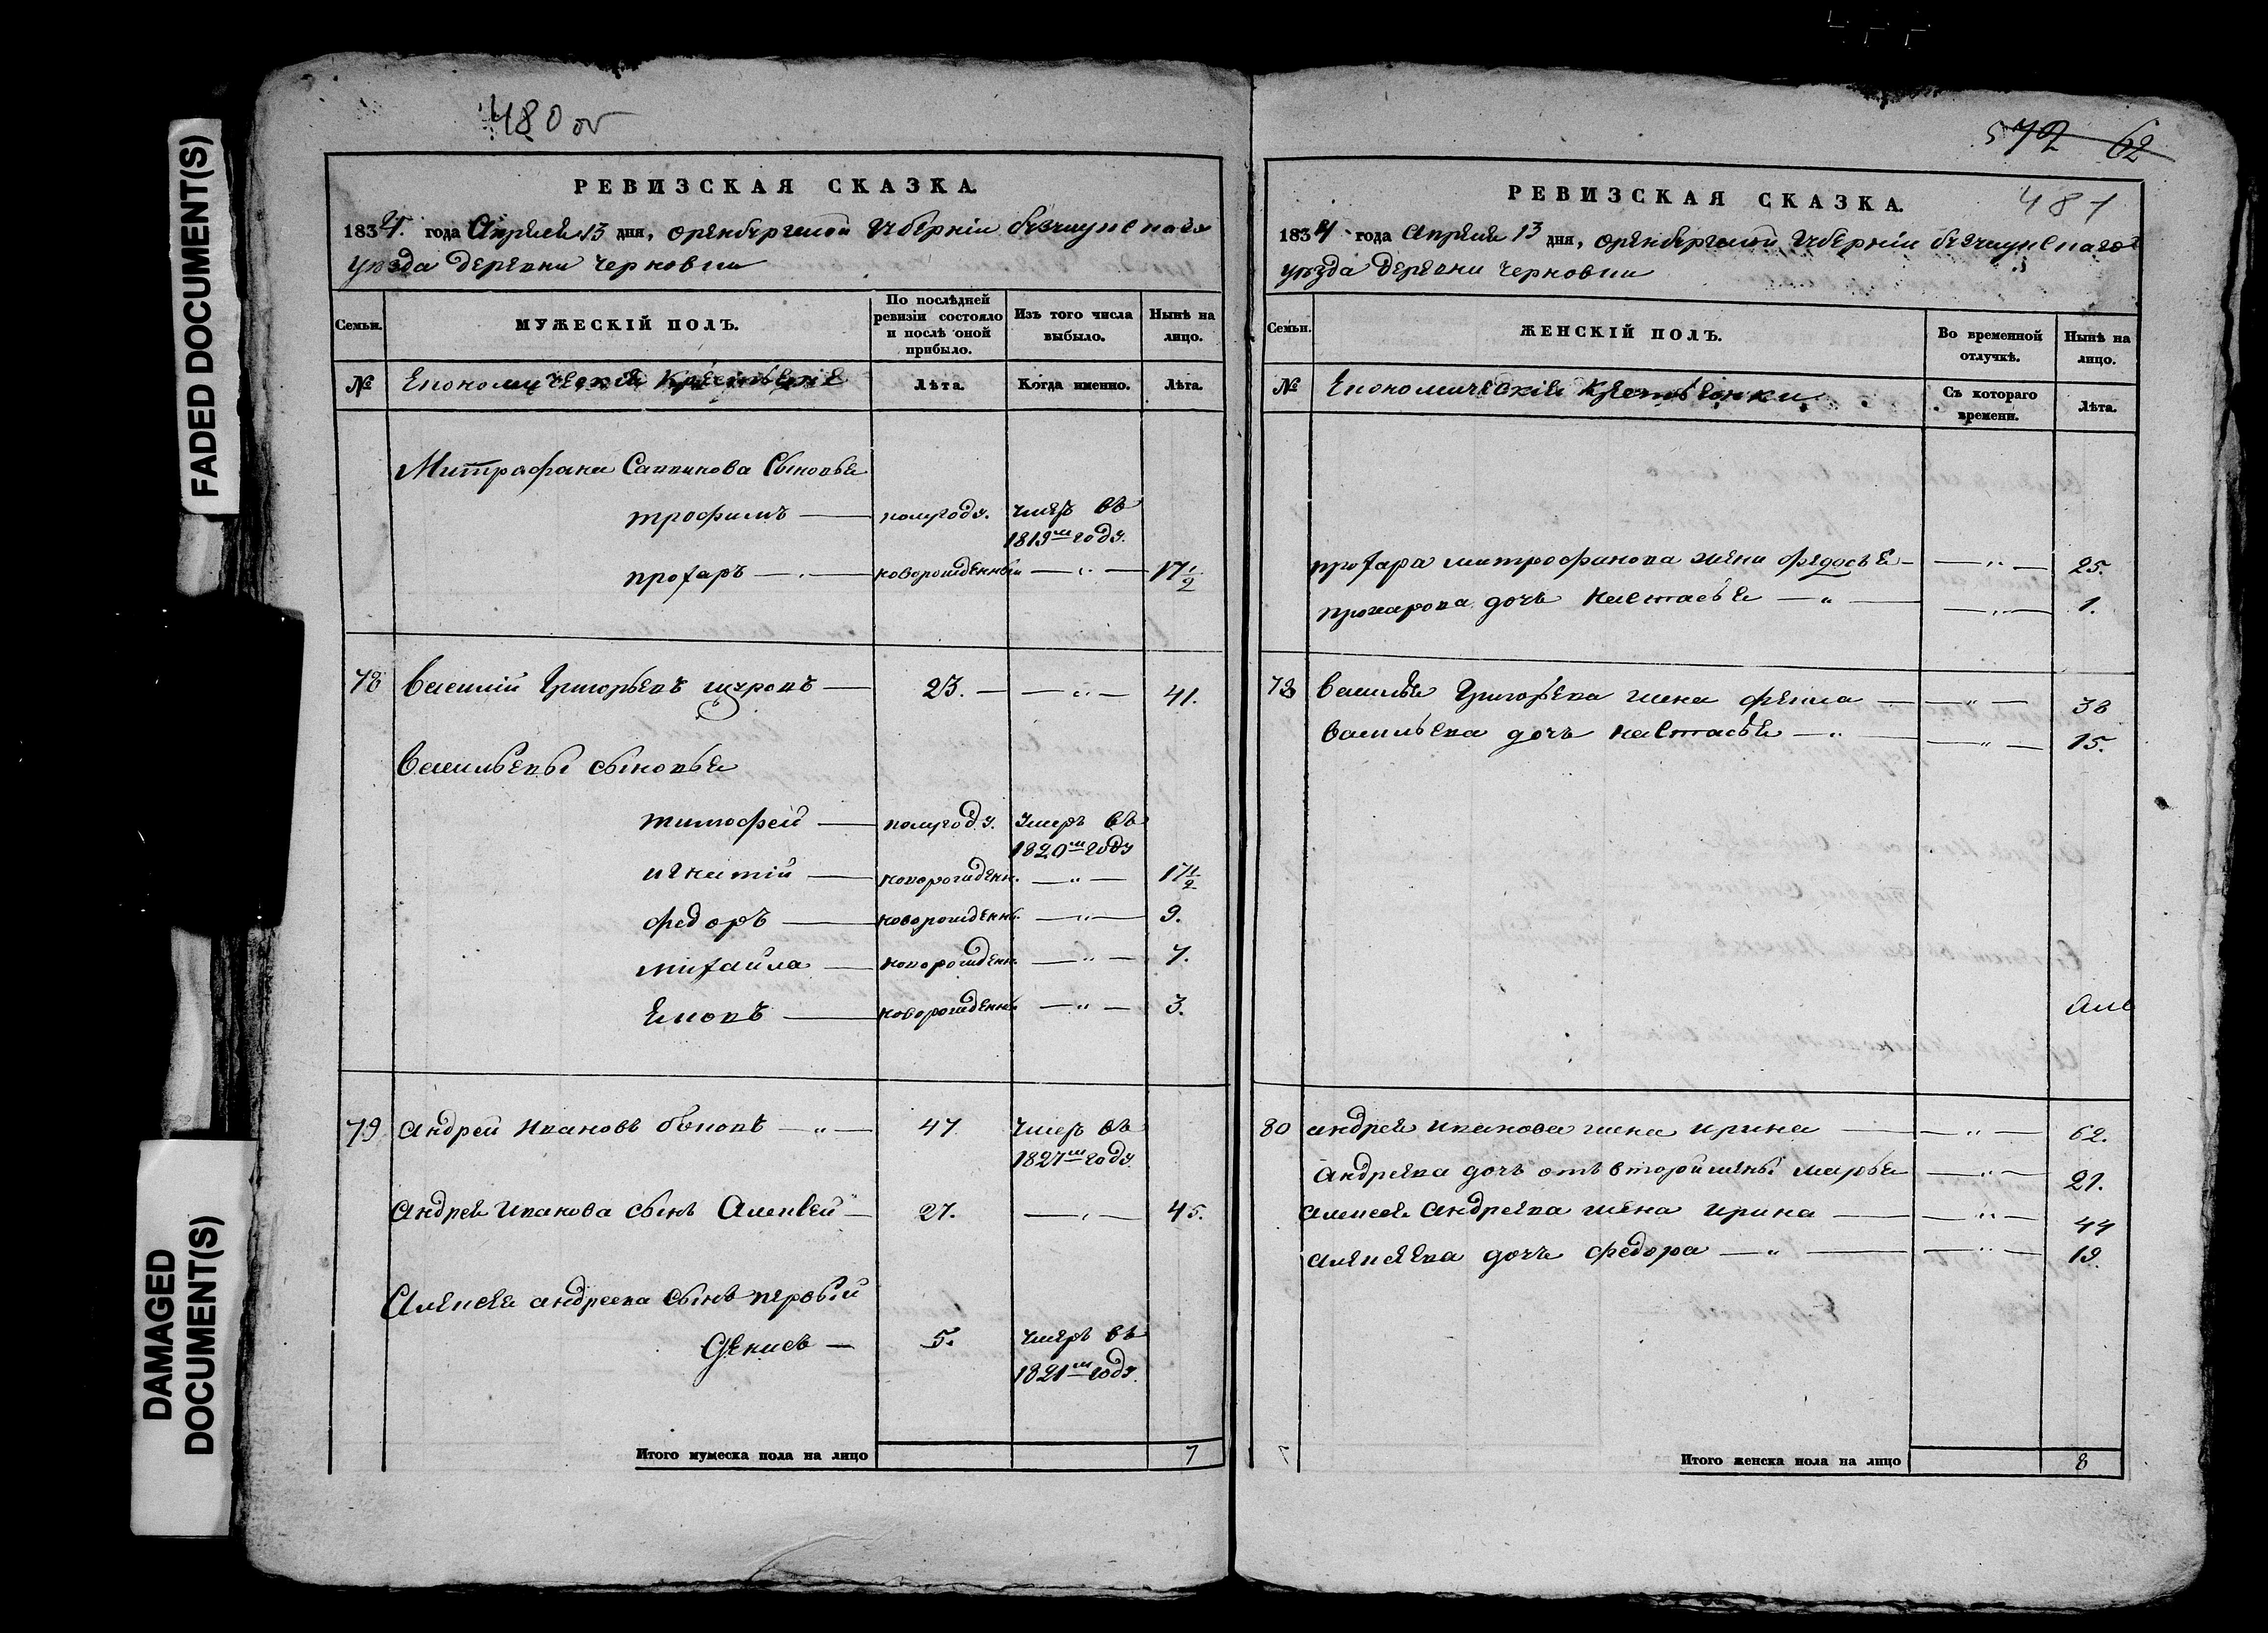 FADED DOCUMENT(S)
DAMAGED
DOCUMENT(S)
480 об
РЕВИЗСКАЯ СКАЗКА.
1834. года Апреля 13 дня, оренбергской губернiи
уезда деревни Черновки
Семьи.
МУЖЕСКIЙ ПОЛЪ.
По послѣдней
ревизiи состояло
и послѣ оной
прибыло.
Изъ того числа
выбыло.
Нынѣ на
лицо.
№
Економическiя крестьяне
Лѣта.
Когда именно.
Лѣта.
Митрафана Сапинова Сыновья
трофимъ — полугоду. умеръ въ
1819м году.
прохаръ — новорожденный — " — 17 1/2
78 Василiй Григорьевъ щуровъ — 23. — — " — 41.
Васильевы сыновья
тимофей — полугоду. умеръ въ
1820м году
игнатiй — новорожденн. — " — 17 1/2
федоръ — новорожденны — " — 9.
михайла — новорожденн. — " — 7.
новорожденны — " — 3.
79 Андрей Ивановъ — " — 47 умеръ въ
1827м году
Андрея Иванова сынъ Алексей — 27. — " — 45.
Алексея андреева сынъ первый
Денисъ — 5. умеръ въ
1821м году.
Итого мужеска пола на лицо 7
572 62
481
РЕВИЗСКАЯ СКАЗКА.
1834 года Апреля 13 дня, оренбергской губернiи
уезда деревни Черновки
Семьи.
ЖЕНСКIЙ ПОЛЪ.
Во временной
отлучкѣ.
Нынѣ на
лицо.
№
Економическiе крестьянки
Съ котораго
времени.
Лѣта.
прохара митрофанова жена федосья — — " — 25.
прохарова дочь настасья — " — — " — 1.
78 Василья Григорьева жена фекла — — " — 38
Васильева дочь настасья — " — — " — 15.
80 андрея иванова жена ирина — — " — 62.
Андреева дочь отъ второй жены марья — " — 21.
Алексея Андреева жена ирина — — " — 44
алексеева дочь федора — " — — " — 19.
Итого женска пола на лицо 8